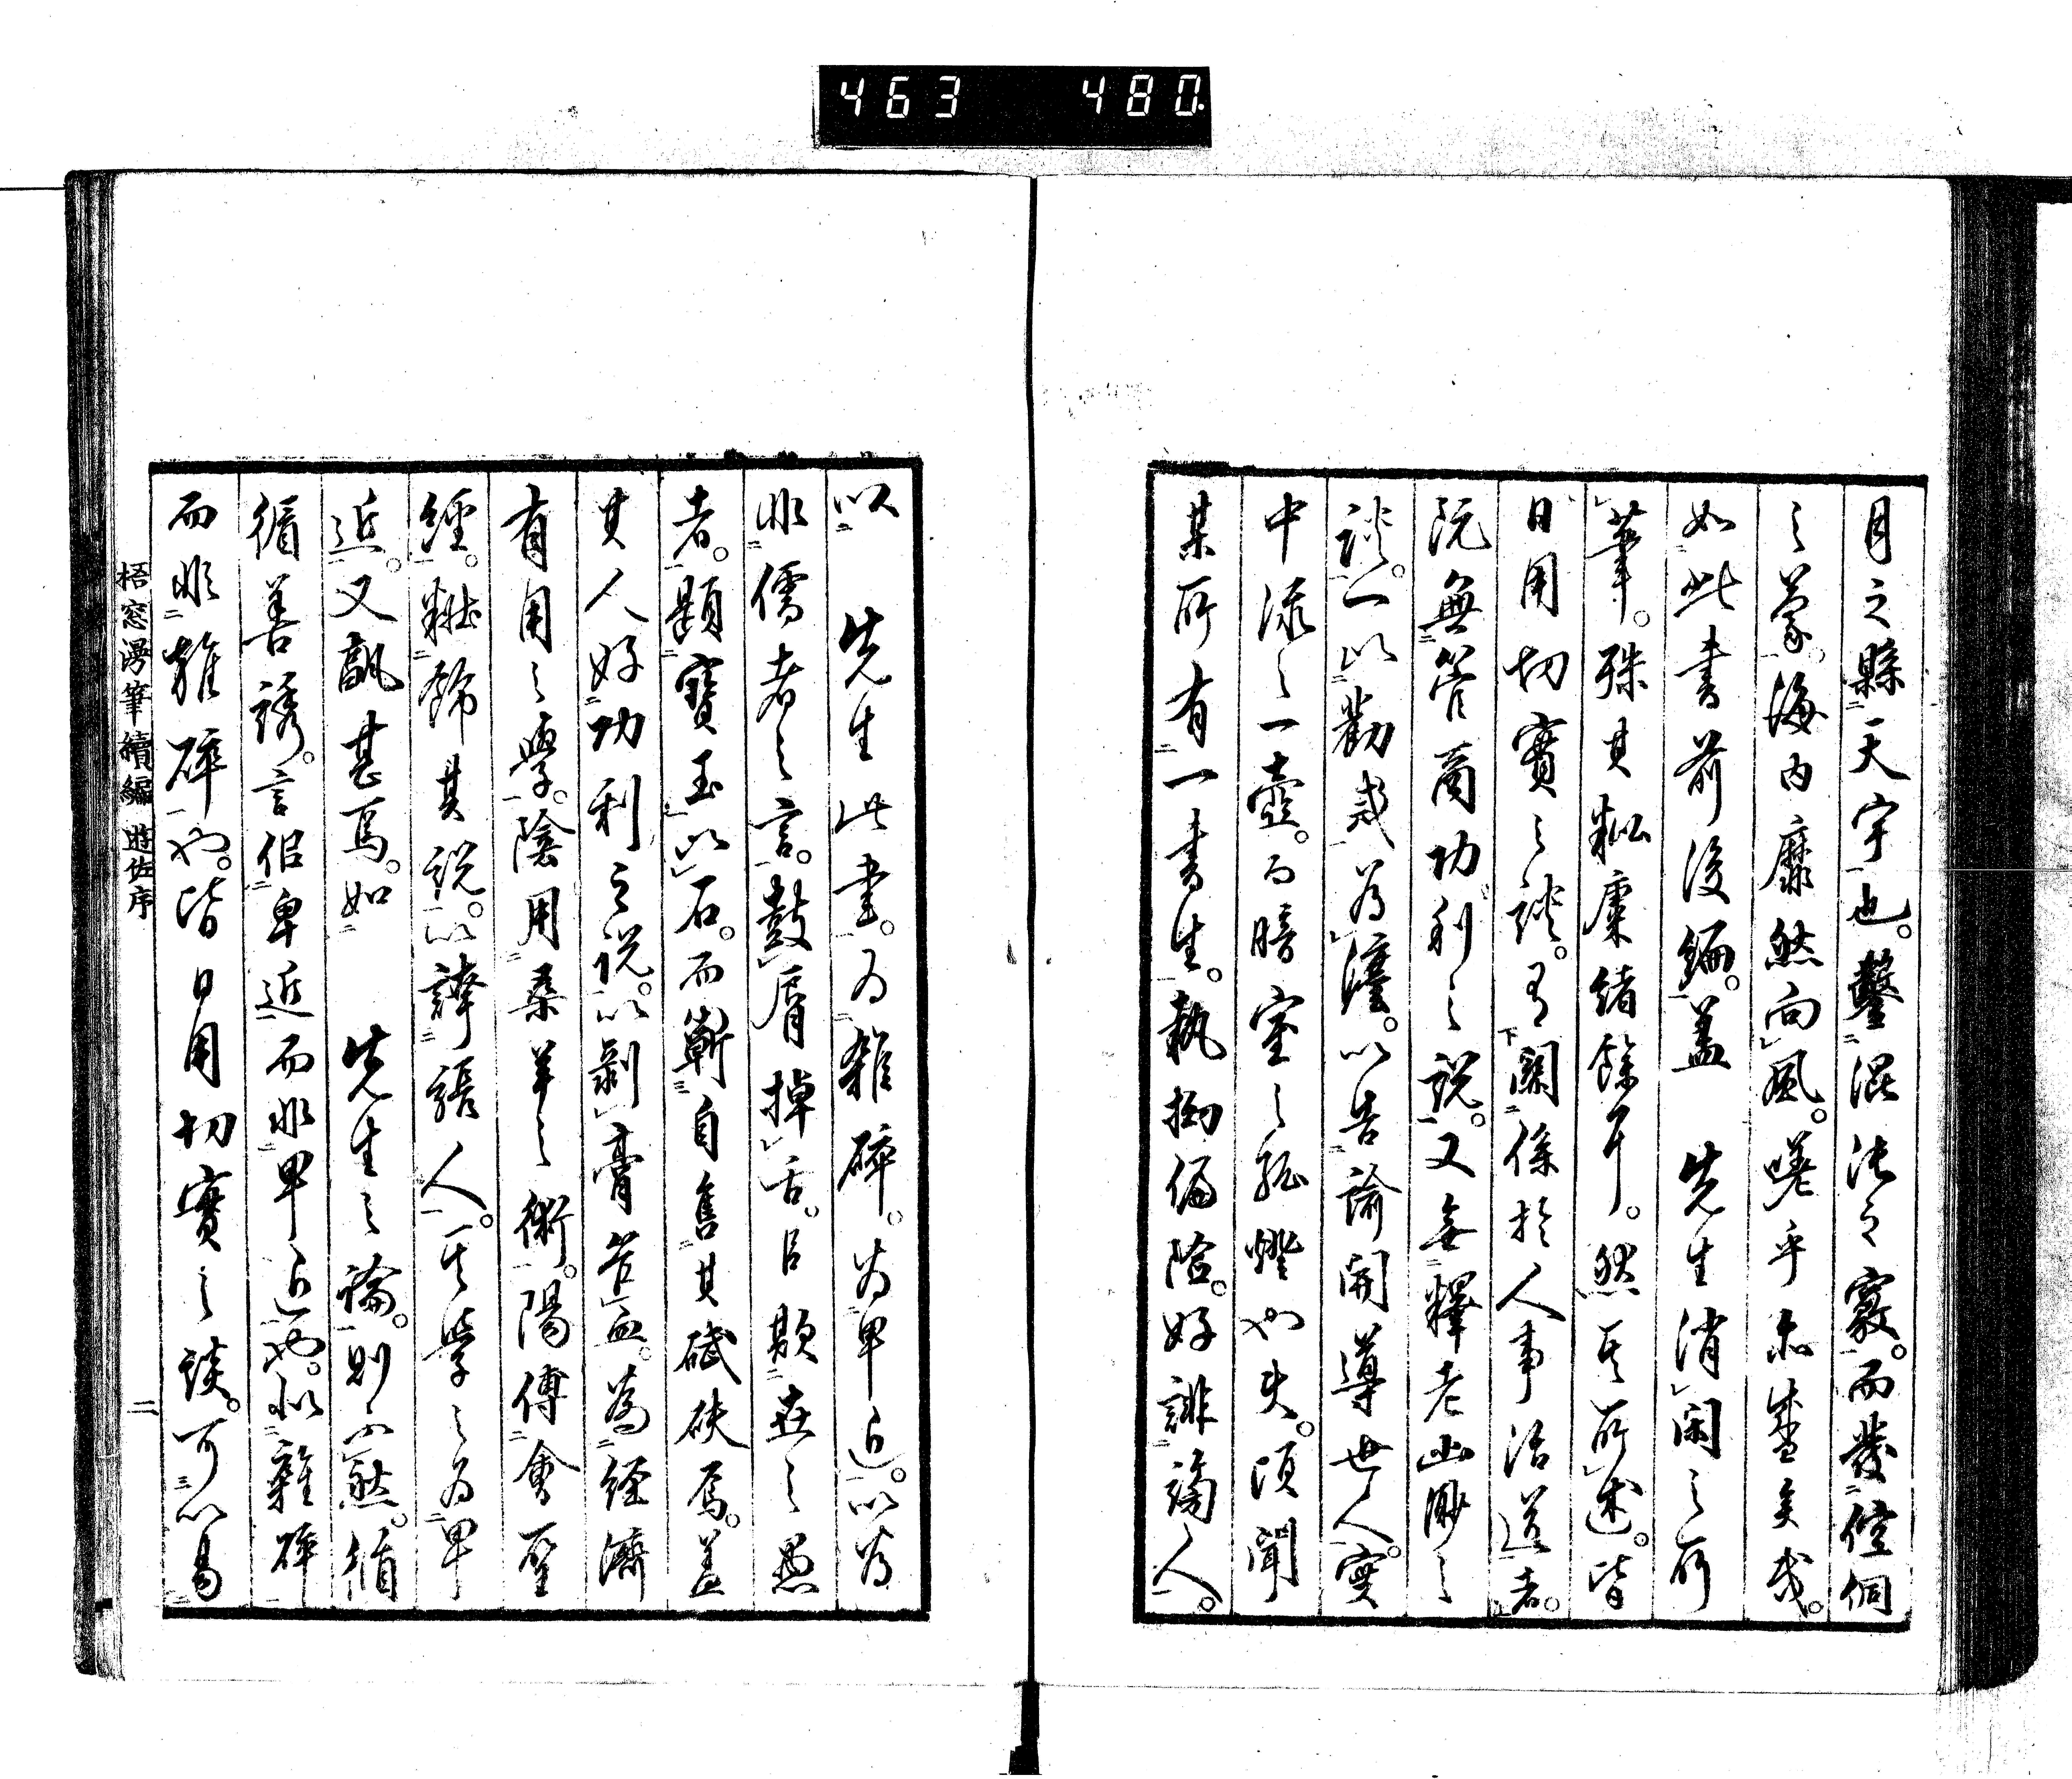 463 480
月之縣天宇也。鑿混沌之竅。而發倥侗
之蒙。海内靡然向風。嗟乎亦盛矣哉。
如此書前後編。蓋 先生消閑之所
筆。殊其粃糠緒餘耳。然其所述。皆
日用切實之談。有關係於人事治道者。
既無管商功利之說。又無釋老幽眇之
談。一以勸戒為讜。以告諭開導世人。實
中流之一壺。而暗室之孤燈也矣。頃聞
某所有一書生。執拗偏險。好誹謗人。
以 先生此書。為雜碎。為卑近。以為
非儒者之言。鼓脣掉舌。以欺世之愚
者。題寶玉以石。而嶄自售其碔砆焉。蓋
其人好功利之說。以剝膏釜血。為經濟
有用之學。陰用桑羊之術。陽傅會聖
經。粧飾其說。以譸張人。其學之為卑
近。又酖甚焉。如 先生之論。則不然。循
循善誘。言似卑近而非卑近也。似雜碎
而非雜碎也。皆日用切實之談。可以易
梧窓漫筆續編 遊佐序 二